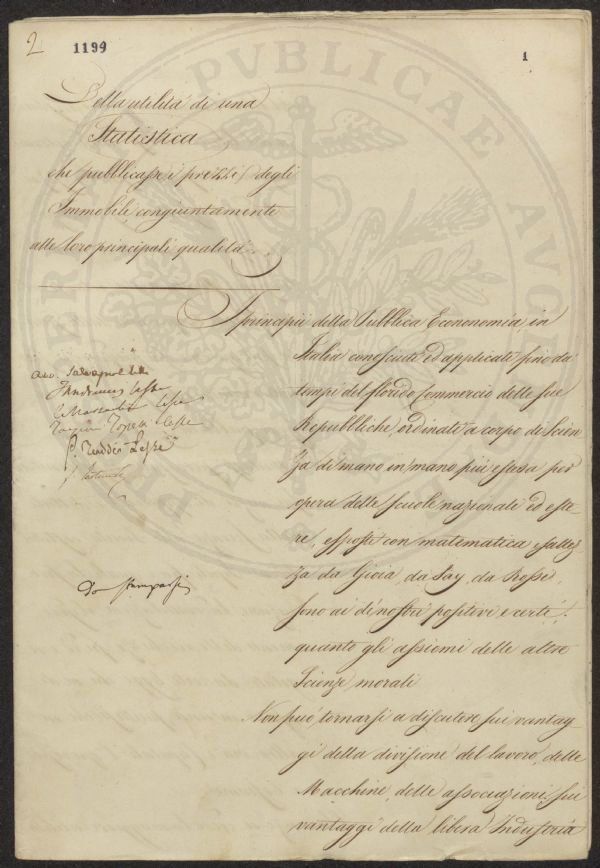 2
1199
1
Della utilità di una
Statistica
che pubblicasse i prezzi degli
Immobili congiuntamente
alle loro principali qualità
I principii della Pubblica Econonomia, in
Italia conosciuti ed applicati fino da
tempi del florido Commercio delle sue
Repubbliche, ordinati a corpo di Scien
za di mano in mano più estesa per
opera delle scuole nazionali ed este-
re, esposti con matematica esattez
za da Gioia, da Say, da Rossi
sono ai dì nostri positivi e certi
quanto gli assiomi delle altre
Scienze morali
Non può tornarsi a discutere sui vantag-
gi della divisione del lavoro, delle
Macchine, delle associazioni, sui
vantaggi della libera Industria
lesse
lesse
lesse
Lesse
Da stamparsi
PVBLICAE